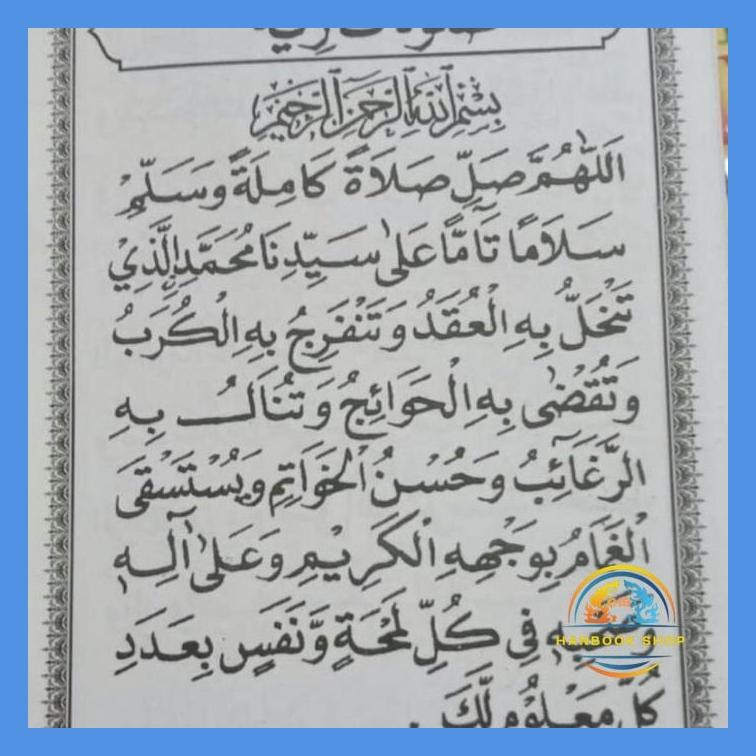 بِسْمِ اللهِ الرَّحْمٰنِ الرَّحِيْمِ
اَللّٰهُمَّ صَلِّ صَلاَةً كَامِلَةً وَسَلِّمْ
سَلاَمًا تَآمًّا عَلٰى سَيِّدِنَا مُحَمَّدِ الَّذِيْ
تَنْحَلُّ بِهِ الْعُقَدُ وَتَنْفَرِجُ بِهِ الْكُرَبُ
وَتُقْضٰى بِهِ الْحَوَائِجُ وَتُنَالُ بِهِ
الرَّغَآئِبُ وَحُسْنُ الْخَوَاتِمِ وَيُسْتَسْقَى
الْغَمَامُ بِوَجْهِهِ الْكَرِيْمِ وَعَلٰى آلِهِ
فِى كُلِّ لَمْحَةٍ وَّنَفَسٍ بِعَدَدِ
HANBOOK SHOP
كُلِّ مَعْلُوْمٍ لَّكَ.